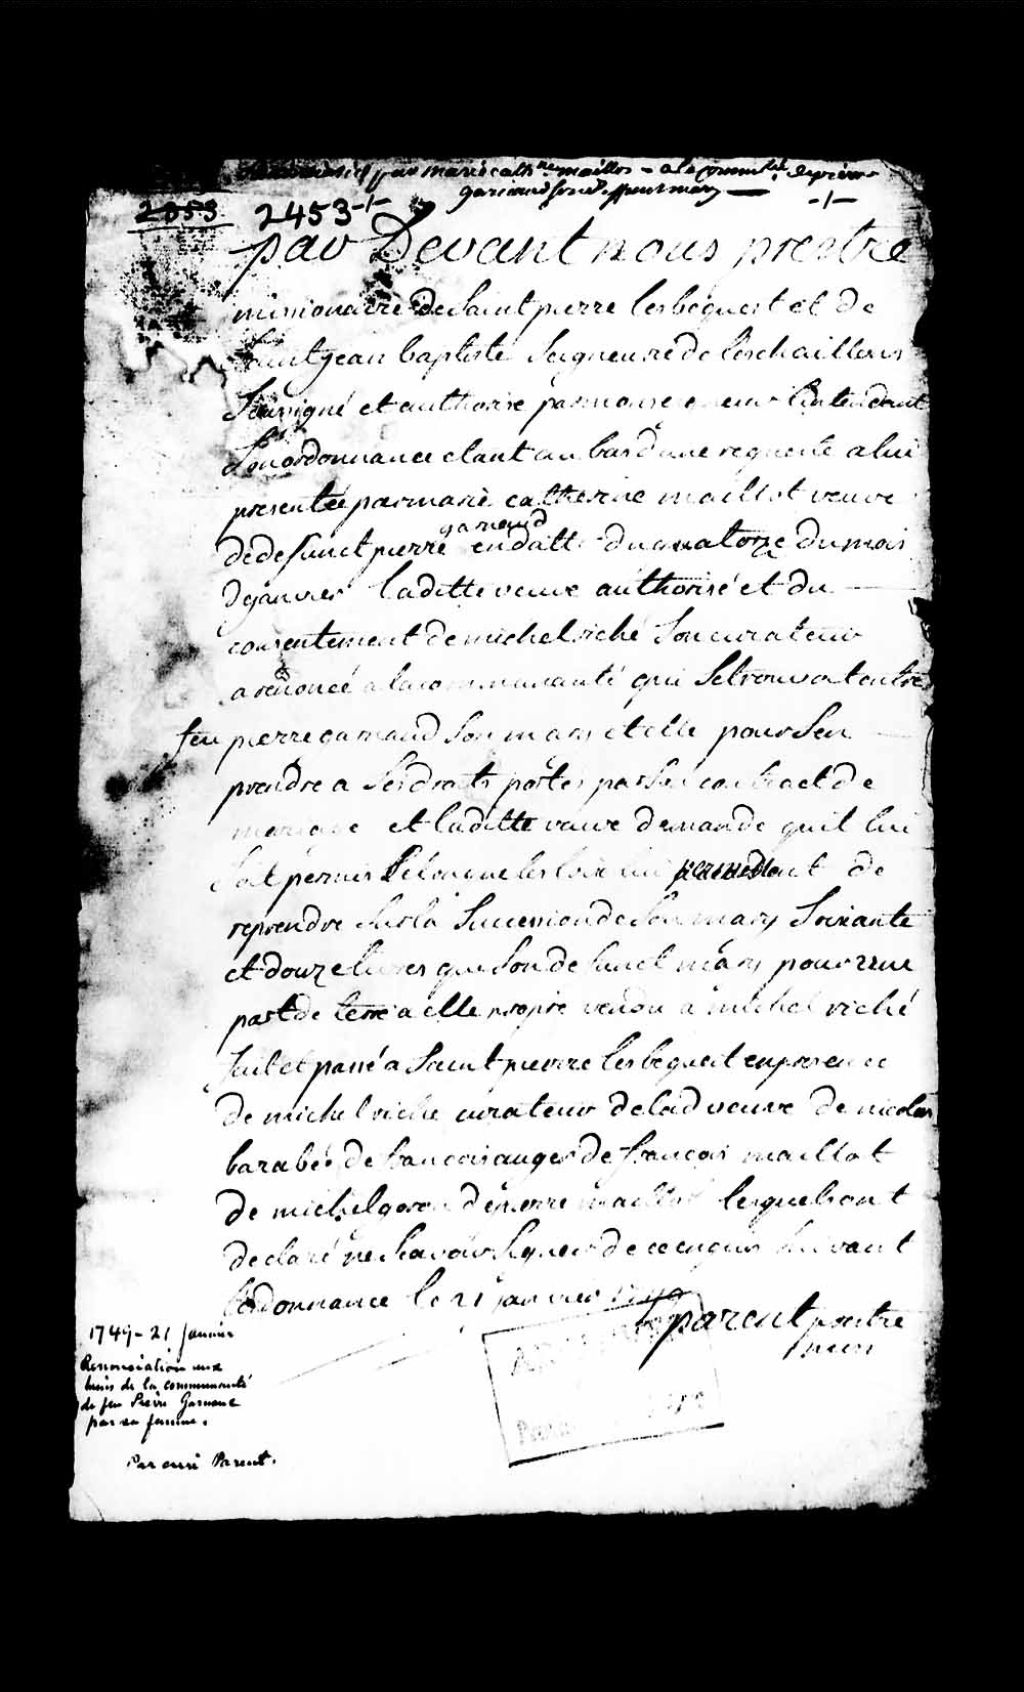 par marie cath.ne maillot - a la commu.té de pierre
gariaud son defunt mary
2053 2453 -/- -/-
par Devant nous prestre
missionaire de Saint pierre lesbequest et de
Saint jean baptiste Seigneurie de leschaillons
Soussigné et authorisé par monsieur lintendant
Son ordonnance etant au bas d'une requeste a lui
presentée par marie catherine maillot veuve
de defunct pierre gariaud en datte du quatorze du mois
de janvier laditte veuve authorisé et du
consentement de michel riché Son curateur
a renoncé a la communauté qui Se trouvoit entre
feu pierre gariaud Son mary et elle pour Sen
prendre a Ses droits portés par Son contract de
mariage et laditte veuve demande quil lui
Soit permis les loix lui permettent de
reprendre Sur la Sucession de Son mary Soixante
et douze livres que Son defunct mary pour une
part de terre a elle propre vendu a michel riché
fait et passé a Saint pierre lesbequest en presence
de michel riché curateur de lad veuve de nicolas
barabée de francois auger de francois maillot
de michel de pierre maillot lesquels ont
declaré ne Scavoir Signer de ce enquis Suivant
lordonnance le 21 janvier 1749
parent prestre
miss
1749 - 21 Janvier
Renonciation aux
biens de la communauté
de feu Pierre Garneau
par sa femme.
Par curé Parent.